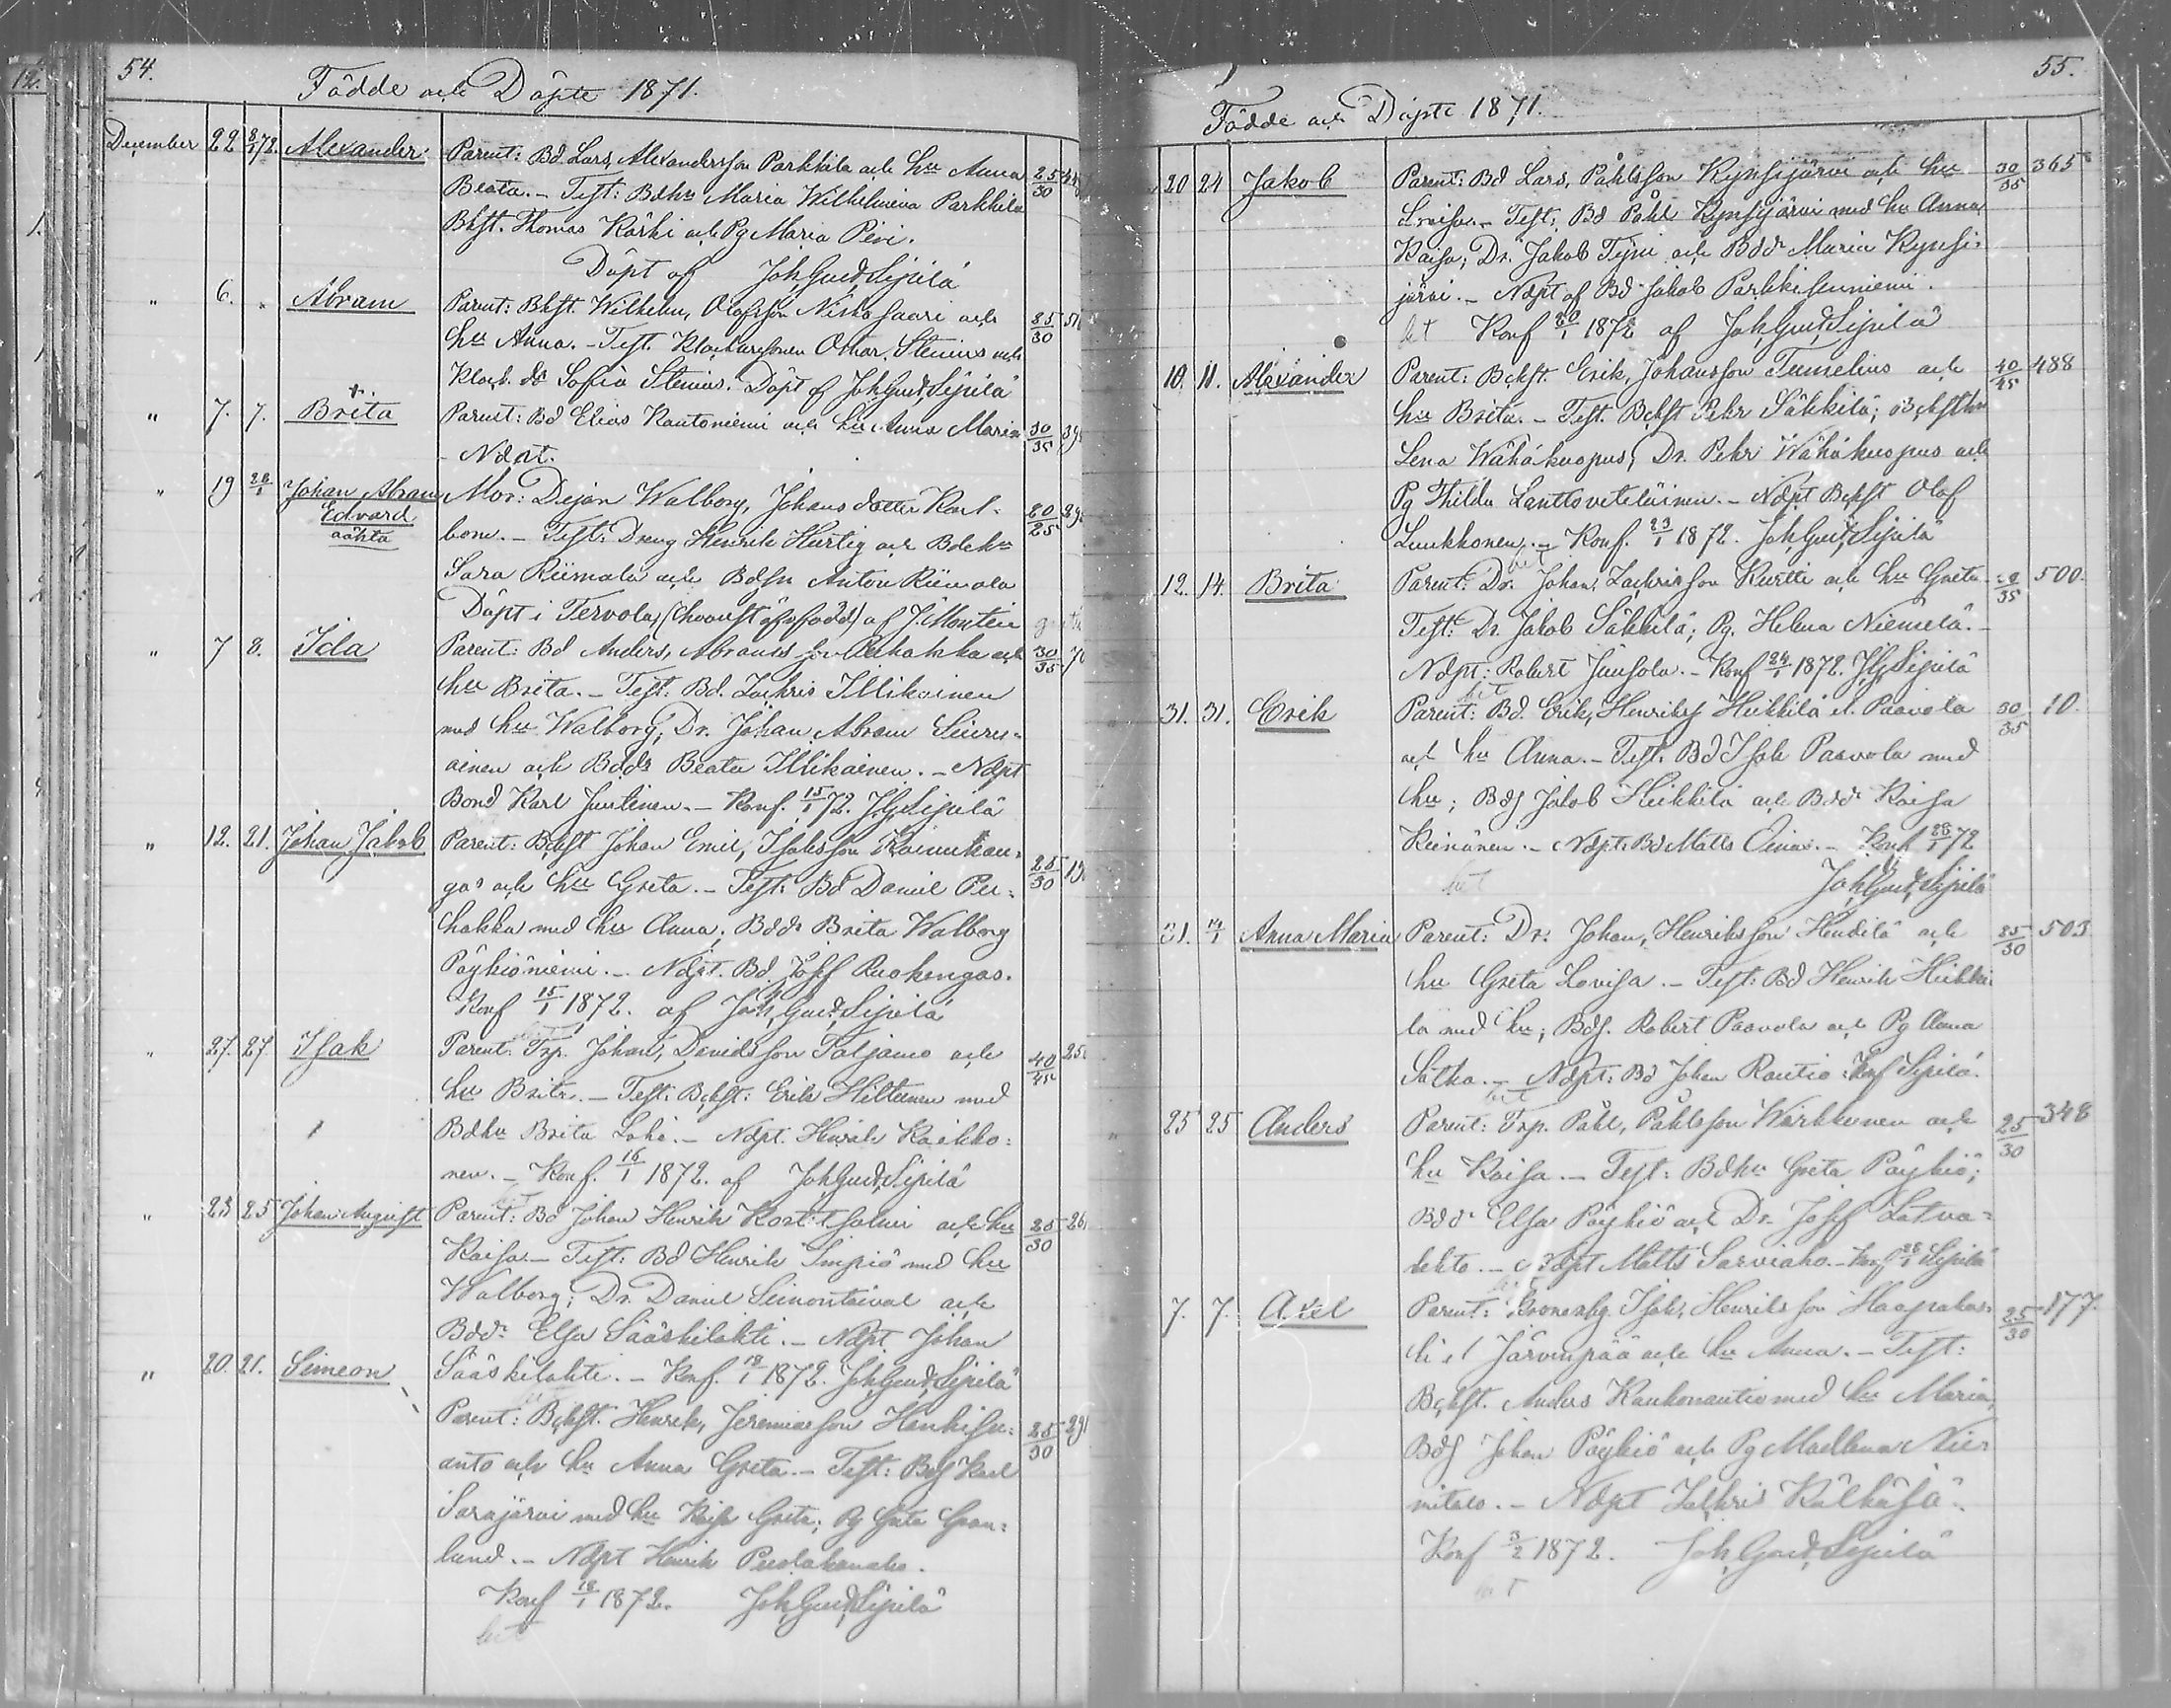 54.
Födde och Döpte 1871.
December 22 8/1 72. Alexander. Parent: Bd. Lars, Alexandersson Parkkila och hu Anna 25/30
Beata. - Test: Bdhu Maria Wilhelmina Parkkila
Bhst. Thomas Kärki och Pg Maria Pivi.
Döpt af Joh, Gust, Sipilä
" 6. " Abram Parent: Bhst. Wilhelm, Olofsson Niskasaari och 25/30
hu Anna. - Test. Klockaresonen Othar Stenius och
Klock. dr Sofia Stenius. Döpt af Joh, Gust, Sipilä
" 7. 7. Brita Parent: Bd Elias Kautoniemi och hu Anna Maria 30/35
- Ndpt.
" 19 28/1 Johan Abram Edvard oäkta Mor: Dejan Walborg, Johans dotter Karl- 20/25
bom. - Test: Dreng Henrik Hurtig och Bdehu
Sara Riimala och Bdsn Anton Riimala
Döpt i Tervola, (hvarest äfv född) af J. Montin
" 7 8. Ida Parent: Bd Anders, Abramsson Peuhakka och 30/35
hu Brita. - Test: Bd. Zachris Illikainen
med hu Walborg, Dr. Johan Abram Siiru-
ainen och Bddr Beata Illikainen. - Ndpt
Bond Karl Juntinen. - Konf. 15/1 72. J, G, Sipilä
" 12. 21. Johan Jakob Parent: Bchst Johan Emil, Isaksson Kainukan- 25/30
gas och hu Greta. - Test: Bd Daniel Peu-
hakka med hu Anna; Bddr Brita Walborg
Pöykiöniemi. - Ndpt. Bd Josef Ruokengas.
Konf 15/1 1872. af Joh, Gust, Sipilä
" 27. 27. Isak Parent: Trp. Johan, Davidsson Paljamo och 40/45
hu Brita. - Test: Bchst: Erik Hiltunen med
Bdhu Brita Lohi. - Ndpt. Henrik Kaikko-
nen. - Konf. 16/1 1872. af Joh, Gust, Sipilä
" 23. 25 Johan August Parent: Bd Johan Henrik Kostet Salmi och hu 25/30
Kaisa. - Test: Bd Henrik Impiö med hu
Walborg; Dr. Daniel Simontaival och
Bddr Elsa Sääskilahti. - Ndpt. Johan
Sääskilahti. - Konf. 18/1 1872. Joh, Gust, Sipilä
" 20. 21. Simeon Parent: Bchst. Henrik, Jeremiasson Hankisu- 25/30
anto och hu Anna Greta. - Test: Bds Karl
Sarajärvi med hu Kaisa Greta; Pg Greta Gran-
lund. - Ndpt Henrik
Konf 18/1 1872. Joh, Gust, Sipilä
55.
Födde och Döpte 1871.
20 24 Jakob Parent: Bd Lars, Påhlsson Kynsijärvi och hu 30/35 365
Lovisa. - Test: Bd Påhl Kynsijärvi med hu Anna
Kaisa; Dr. Jakob Tyni och Bddr Maria Kynsi-
järvi. - Ndpt af Bd Jakob Parkkisenniemi.
Konf 20/1 1872 af Joh, Gust, Sipilä
10. 11. Alexander Parent: Bchst. Erik, Johansson Tumelius och 40/45 488
hu Brita. - Test. Bchst Pehr Säkkilä; Bchsthu
Lena Wähäkuopus; Dr. Pehr Wähäkuopus och
Pg Thilda Lanttoveteläinen. - Ndpt Bchst Olof
Luukkonen. - Konf. 23/1 1872. Joh, Gust, Sipilä
12. 14. Brita Parent: Dr. Johan, Zachrisson Kurtti och hu Greta 500.
Test: Dr. Jakob Säkkilä; Pg. Helena Niemelä. -
Ndpt: Robert Juusola. - Konf 24/1 1872. J, G, Sipilä
31. 31. Erik Parent: Bd. Erik, Henriks Heikkilä el. Paavola 30/35 10.
och hu Anna. - Test. Bd Isak Paavola med
hu; Bds Jakob Heikkilä och Bddr Kaisa
Keinänen. - Ndpt: Bd Matts Oinas. - Konf 28/1 72
Joh, Gust, Sipilä
31. 14/1 Anna Maria Parent: Dr. Johan, Henriksson Hendilä och 25/30 503
hu Greta Lovisa. - Test: Bd Henrik Heikki-
lä med hu; Bds. Robert Paavola och Pg Anna
Satka. - Ndpt: Bd Johan Rautio. Konf Sipilä.
25 25 Anders Parent: Trp. Påhl, Påhlsson Warkkinen och 25/30 348
hu Kaisa. - Test: Bdhu Greta Pöykiö;
Bddr Elsa Pöykiö och Dr. Josef Latva-
lehto. - Ndpt Matts Sarviaho. - Konf 28/1 Sipilä
7. 7. Axel Parent: Kronorbg Isak, Henriksson Haapakos- 25/30 177.
ki el Järvenpää och hu Anna. - Test:
Bchst. Anders Kaukonautio med hu Maria,
Bds Johan Pöykiö och Pg Madlena Nie-
mitalo. - Ndpt Zachris Kälkäjä.
Konf 3/2 1872. Joh, Gust, Sipilä